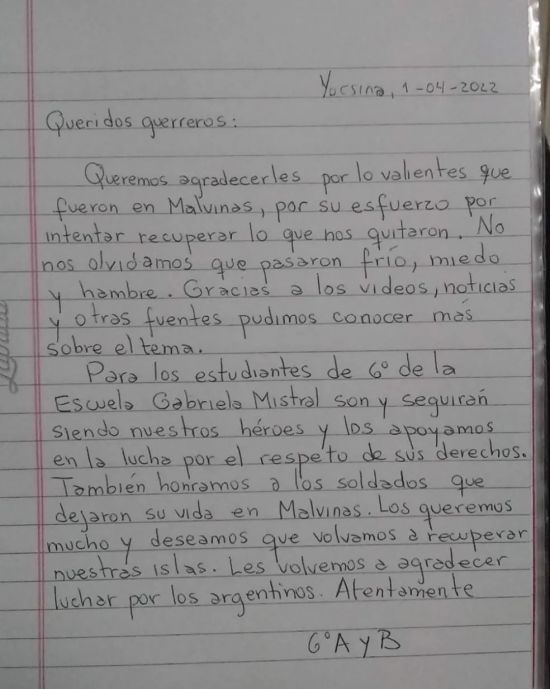 Yocsina, 1-04-2022
Queridos guerreros:
Queremos agradecerles por lo valientes que
fueron en Malvinas, por su esfuerzo por
intentar recuperar lo que nos quitaron. No
nos olvidamos que pasaron frío, miedo
y hambre. Gracias a los videos, noticias
y otras fuentes pudimos conocer más
sobre el tema.
Para los estudiantes de 6° de la
Escuela Gabriela Mistral son y seguirán
siendo nuestros héroes y los apoyamos
en la lucha por el respeto de sus derechos.
También honramos a los soldados que
dejaron su vida en Malvinas. Los queremos
mucho y deseamos que volvamos a recuperar
nuestras islas. Les volvemos a agradecer
luchar por los argentinos. Atentamente
6°A y B